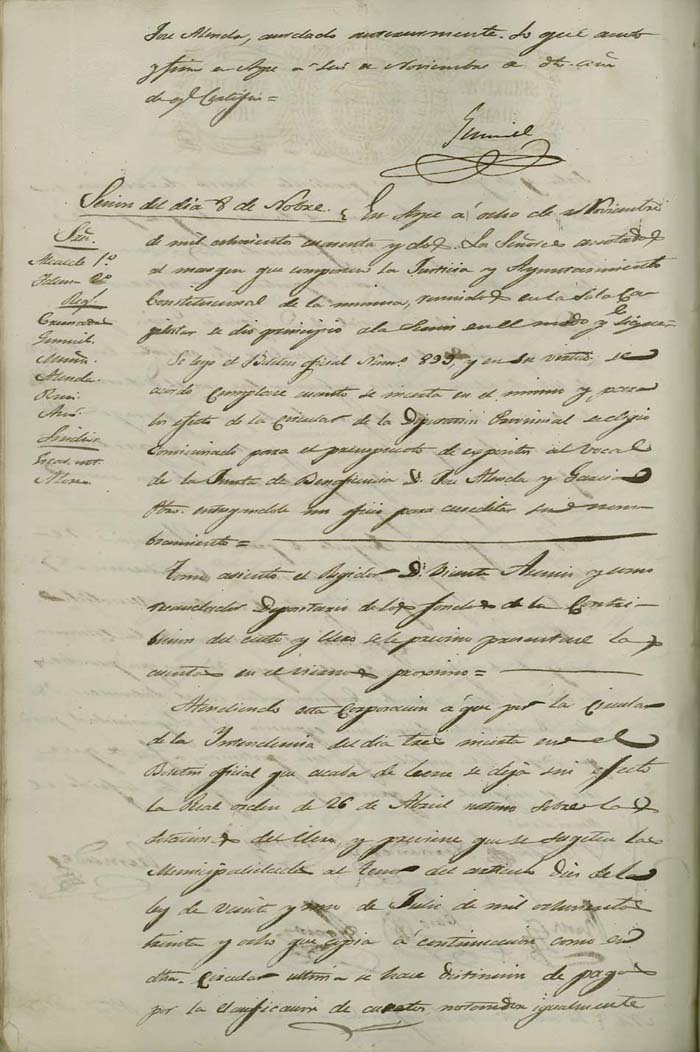 José Alenda, acordado anteriormente. Lo que anoto
y firmo en Aspe a seis de Noviembre de dho. año
de q.e Certifico =
Sesion del dia 8 de Nobre. En Aspe á ocho de Noviembre
de mil ochocientos cuarenta y dos. Los Señores anotados
al margen que componen la Justicia y Ayuntamiento
Constitucional de la misma, reunidos en la Sala Ca-
pitular se dio principio a la Sesion en el modo q.e Sigue.
Sres.
Alcalde 1.º
Idem 2.º
Reg.s
Alenda.
Sindico
Se leyo el Boletin oficial Num.º 899, y en su virtud, se
acordo Cumplase cuanto se inserta en el mismo y para
los efectos de la Circular de la Diputacion Provincial se eligio
Comisionado para el presupuesto de espositos al Vocal
de la Junta de Beneficencia D. José Alenda y Garcia
Pbro. entregandole un oficio para acreditar su nom-
bramiento =
Tomo asiento el Regidor D. Vicente y como
recaudador Depositario de los fondos de la Contri-
bucion del culto y clero se le previno presentase las
cuentas en el viernes proximo =
Atendiendo esta Corporacion á que por la Circular
de la Intendencia del dia tres inserta en el
Boletin oficial que acaba de leerse se deja sin efecto
la Real orden de 26 de Abril ultimo sobre las
dotaciones del Clero, y previene que se sugeten las
Municipalidades al tenor del articulo dies de la
ley de veinte y uno de Julio de mil ochocientos
treinta y ocho que copia á continuacion como en
dha. Circular ultima se hace distincion de pagos
por la clasificacion de cuotas igualmente